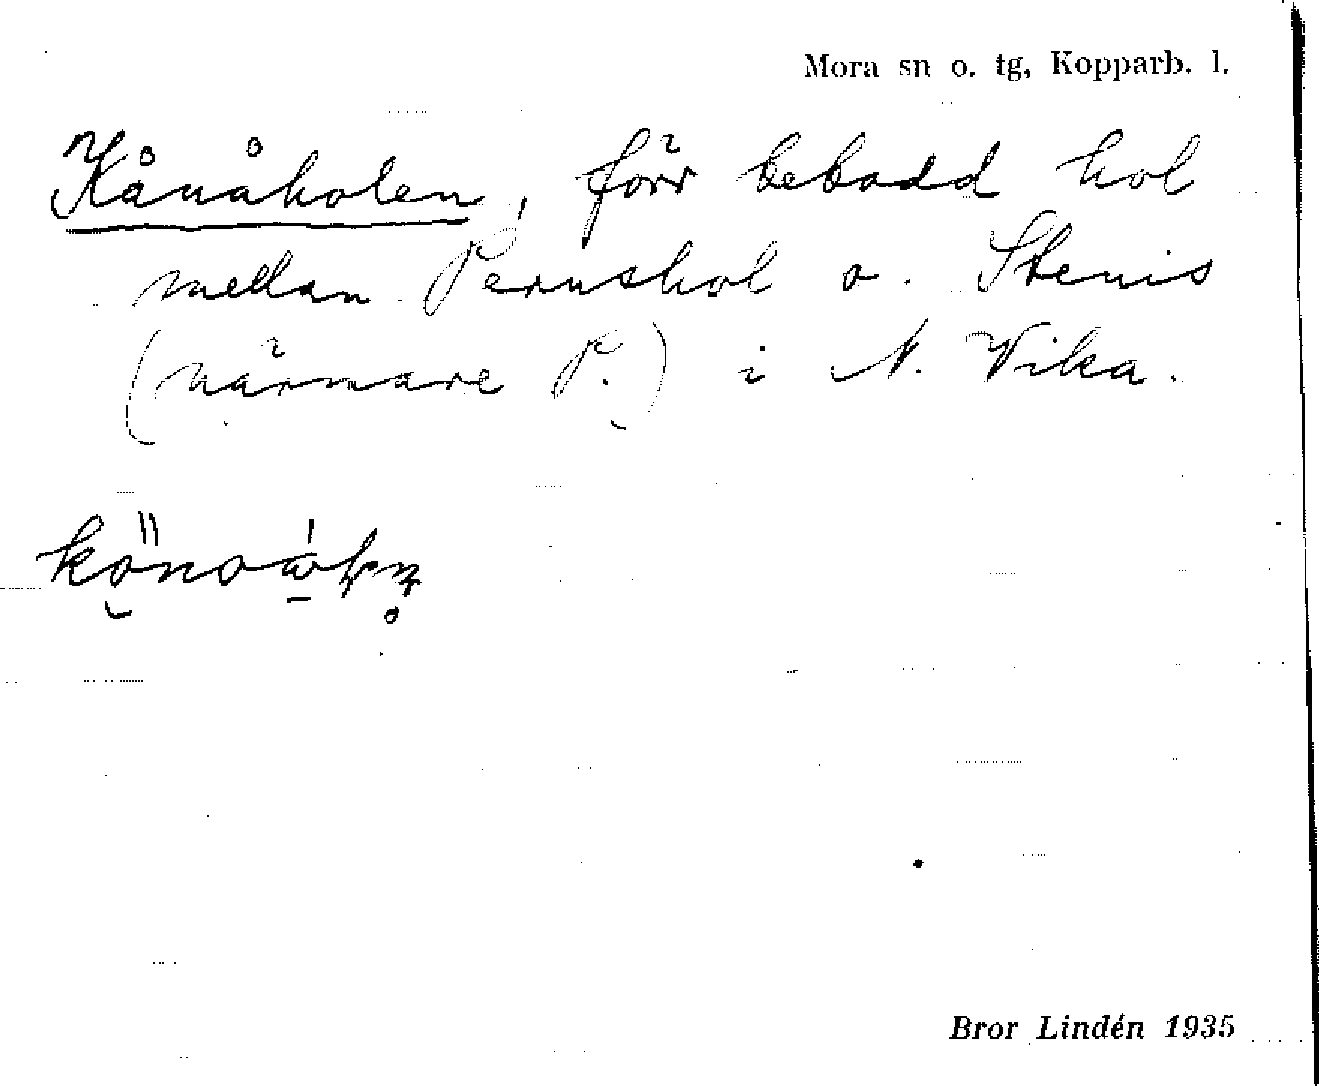 Mora sn o. tg, Kopparb. l.
Kånåholen, förr bebodd hol
mellan Pernshol o. Stenis
(närmare P.) i N. Vika.
Bror Lindén 1935